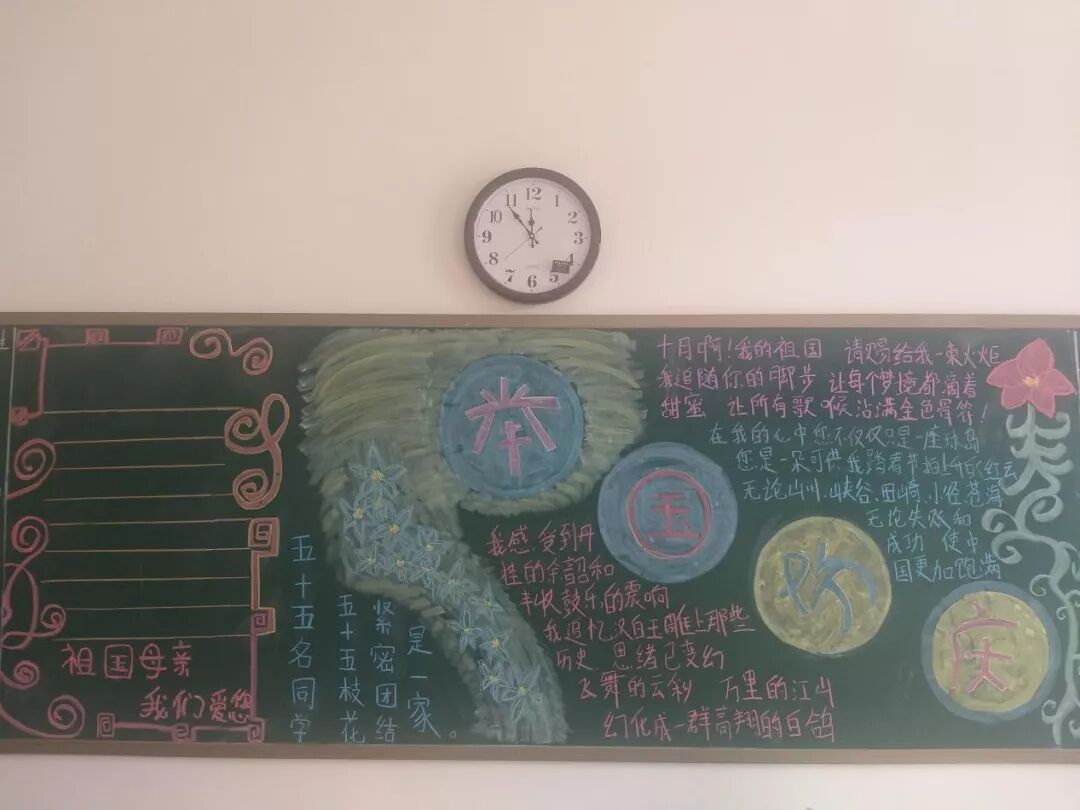 12
1
2
3
4
5
6
7
8
9
10
11
祖国母亲
我们爱您
五十五名同学
五十五枝花
紧密团结
是一家。
举
国
欢
庆
十月啊!我的祖国 请赐给我一束火炬
我追随你的脚步 让每个梦境都滴着
甜蜜 让所有歌喉沾满金色音符!
在我的心中您不仅仅只是一座珠岛
您是一朵可供我踏着节拍上升的红云
无论山川.峡谷.田崎.小径苍海
无论失败和
成功 使中
国更加饱满
我感受到丹
桂的余韶和
丰收鼓乐的震响
我追忆汉白玉雕上那些
历史 思绪已变幻
飞舞的云彩 万里的江山
幻化成一群高翔的白鸽